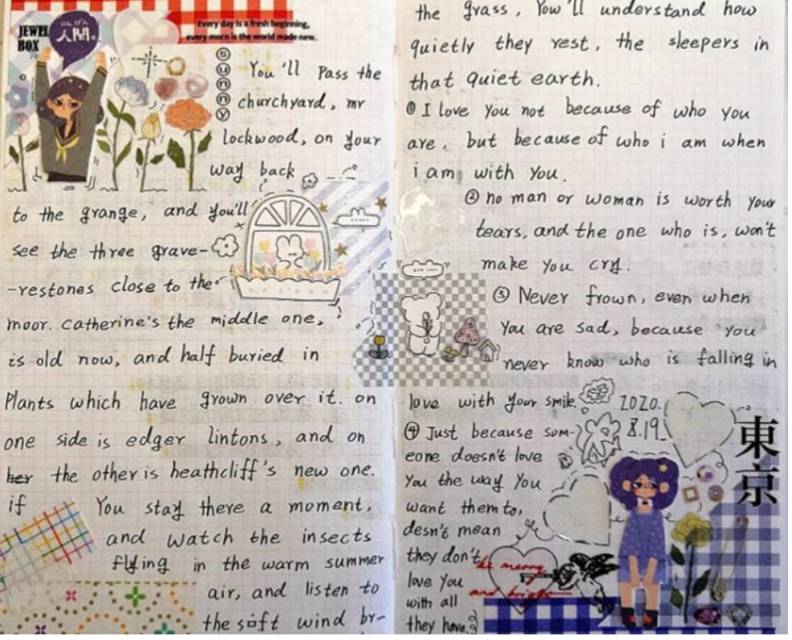 JEWEL
BOX
人間。
Every day is a fresh beginning,
every morn is the world made new.
SUNNY
You'll Pass the
churchyard, mr
lockwood, on your
way back
to the grange, and you'll
see the three grave-
-restones close to the
moor. Catherine's the middle one,
is old now, and half buried in
Plants which have grown over it. on
one side is edger lintons, and on
her the other is heathcliff's new one.
if You stay there a moment,
and watch the insects
flying in the warm summer
air, and listen to
the soft wind br-
the grass, You'll understand how
quietly they rest, the sleepers in
that quiet earth.
① I love You not because of who you
are, but because of who i am when
i am with You.
② no man or woman is worth your
tears, and the one who is, won't
make you cry.
③ Never frown, even when
You are sad, because you
never know who is falling in
love with your smile.
2020.
8.19
④ Just because som-
eone doesn't love
You the way You
want them to,
desn't mean
they don't
love you
with all
they have.
be merry
and bright
東京